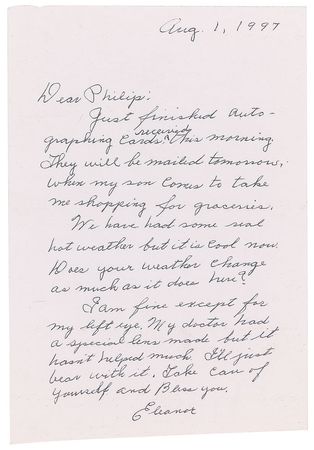 Aug. 1, 1997
Dear Philip:
Just finished auto-
graphing cards received this morning.
They will be mailed tomorrow,
when my son comes to take
me shopping for groceries.
We have had some real
hot weather but it is cool now.
Does your weather change
as much as it does here?
I am fine except for
my left eye. My doctor had
a special lens made but it
hasn't helped much. I'll just
bear with it. Take care of
yourself and Bless you.
Eleanor